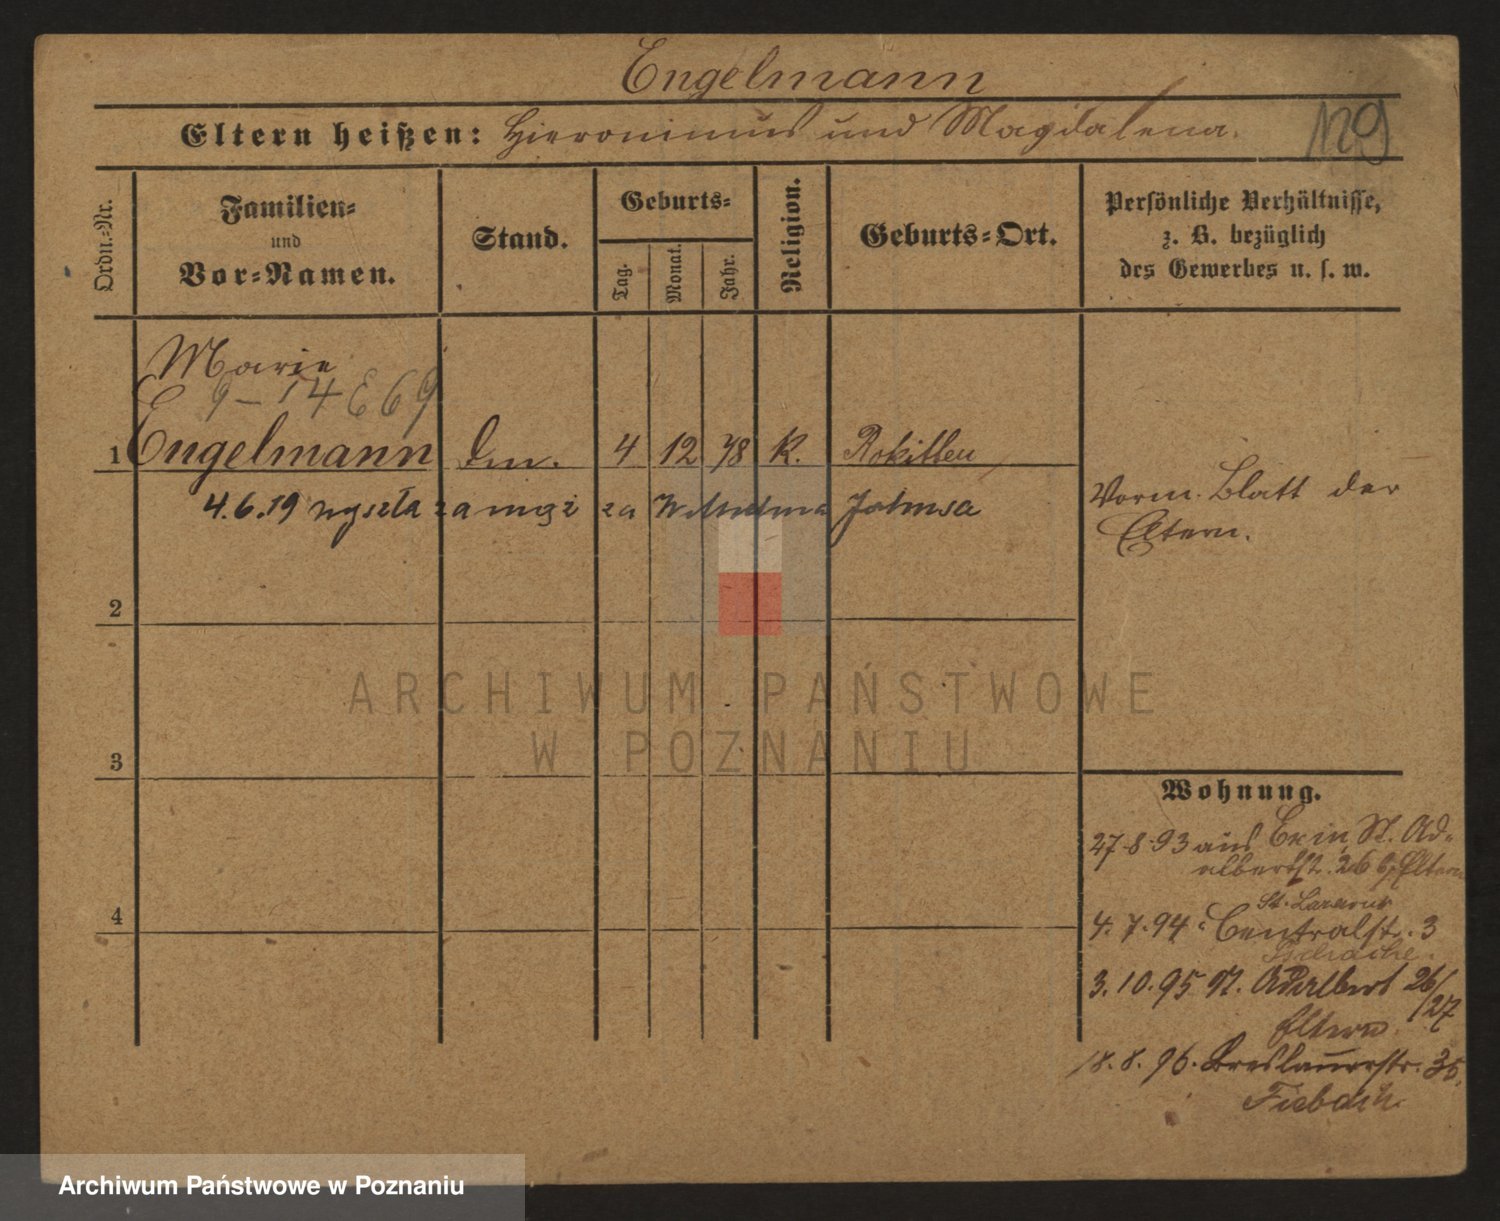 Engelmann
Eltern heißen: Hieronimus und Magdalena.
129
Ordn.-Nr.
Familien-
und
Vor-Namen.
Stand.
Geburts-
Tag.
Monat.
Jahr.
Religion.
Geburts-Ort.
Persönliche Verhältnisse,
z. B. bezüglich
des Gewerbes u. s. w.
Marie
9-14 E 69
1 Engelmann 4 12 78 K. Rokitten
4.6.19 wyszła za mąż za Wilhelma
Vorm. Blatt der
Eltern.
2
3
4
Wohnung.
27.8.93 aus Exin, St. Ad-
albertstr. 26 b/Eltern
St. Lazarus
4.7.94 Centralstr. 3
3.10.95 St. Adalbert 26/27
Eltern
18.8.96. Breslauerstr. 35.
Fiebach.
ARCHIWUM PAŃSTWOWE
W POZNANIU
Archiwum Państwowe w Poznaniu